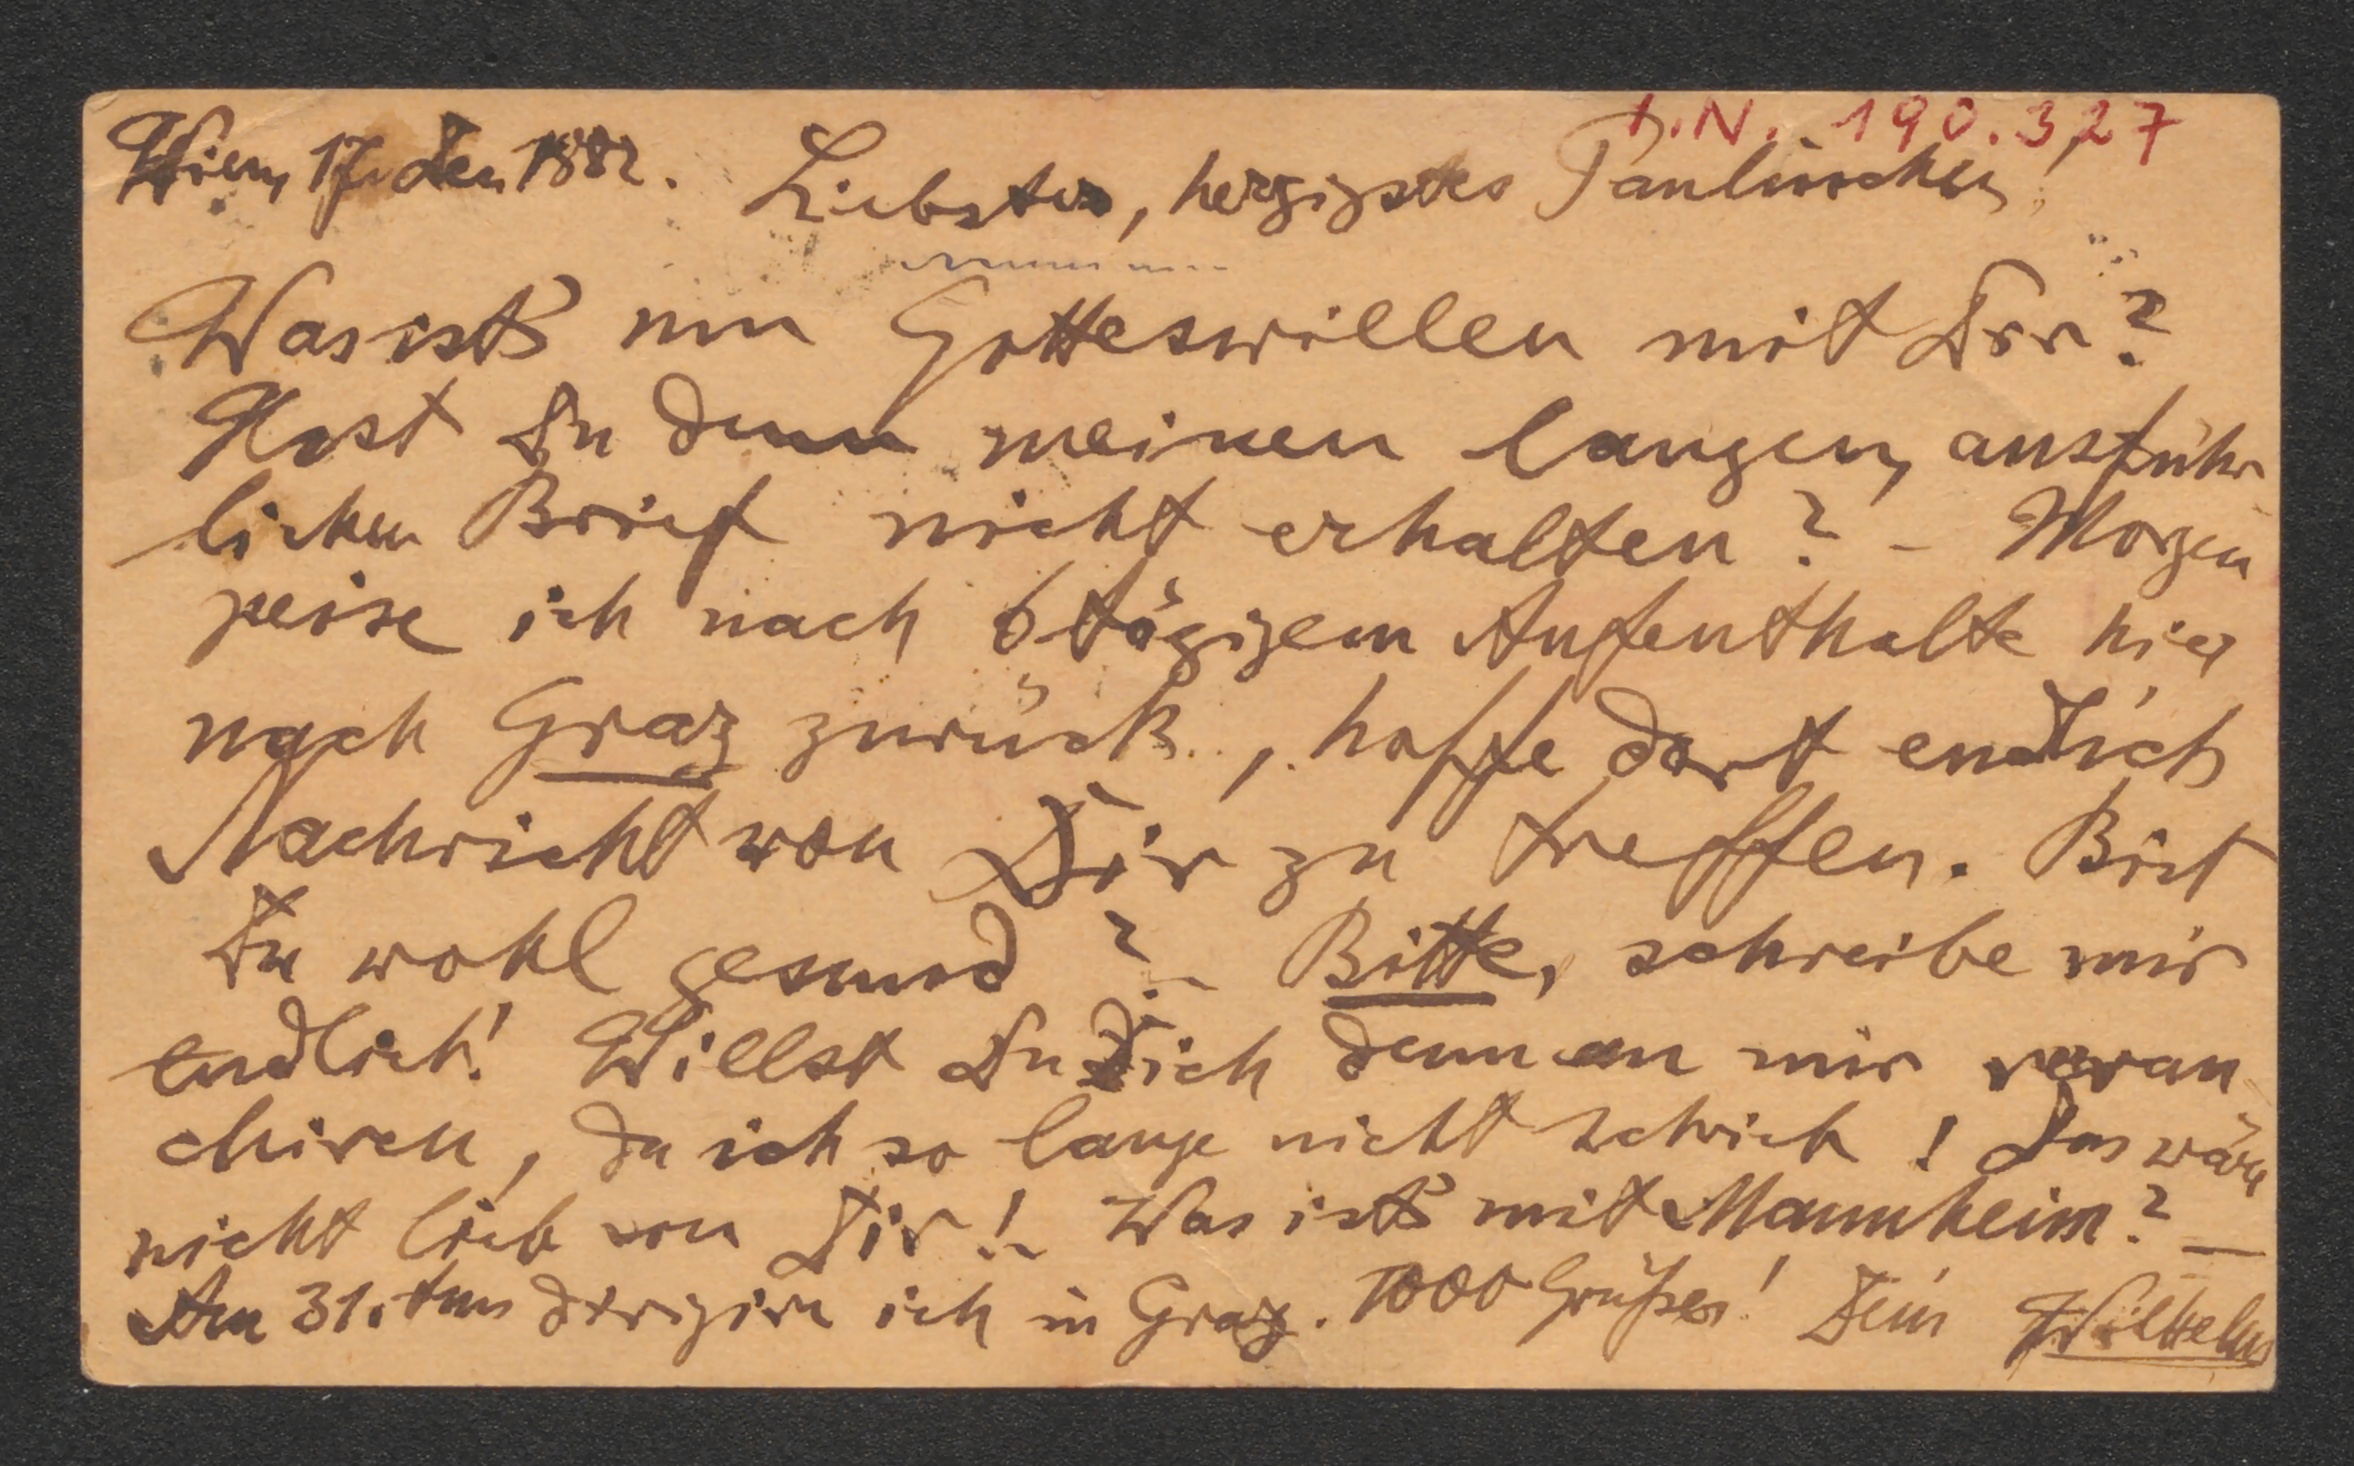 I.N. 190.327
Wien, 17. Dez. 1882. Liebstes, herzigstes Paulinschen!
Was ists um Gotteswillen mit Dir?
Hast Du denn meinen langen, ausführ
lichen Brief nicht erhalten? – Morgen
reise ich nach 6tägigem Aufenthalte hier
nach Graz zurück, hoffe dort endlich
Nachricht von Dir zu treffen. Bist
Du wohl gesund? – Bitte, schreibe mir
endlich! Willst Du Dich denn an mir revan
chiren, da ich so lange nicht schrieb! Das wäre
nicht lieb von Dir! – Was ists mit Mannheim? –
Am 31. dirigire ich in Graz. 1000 Grüße! Dein Wilhelm